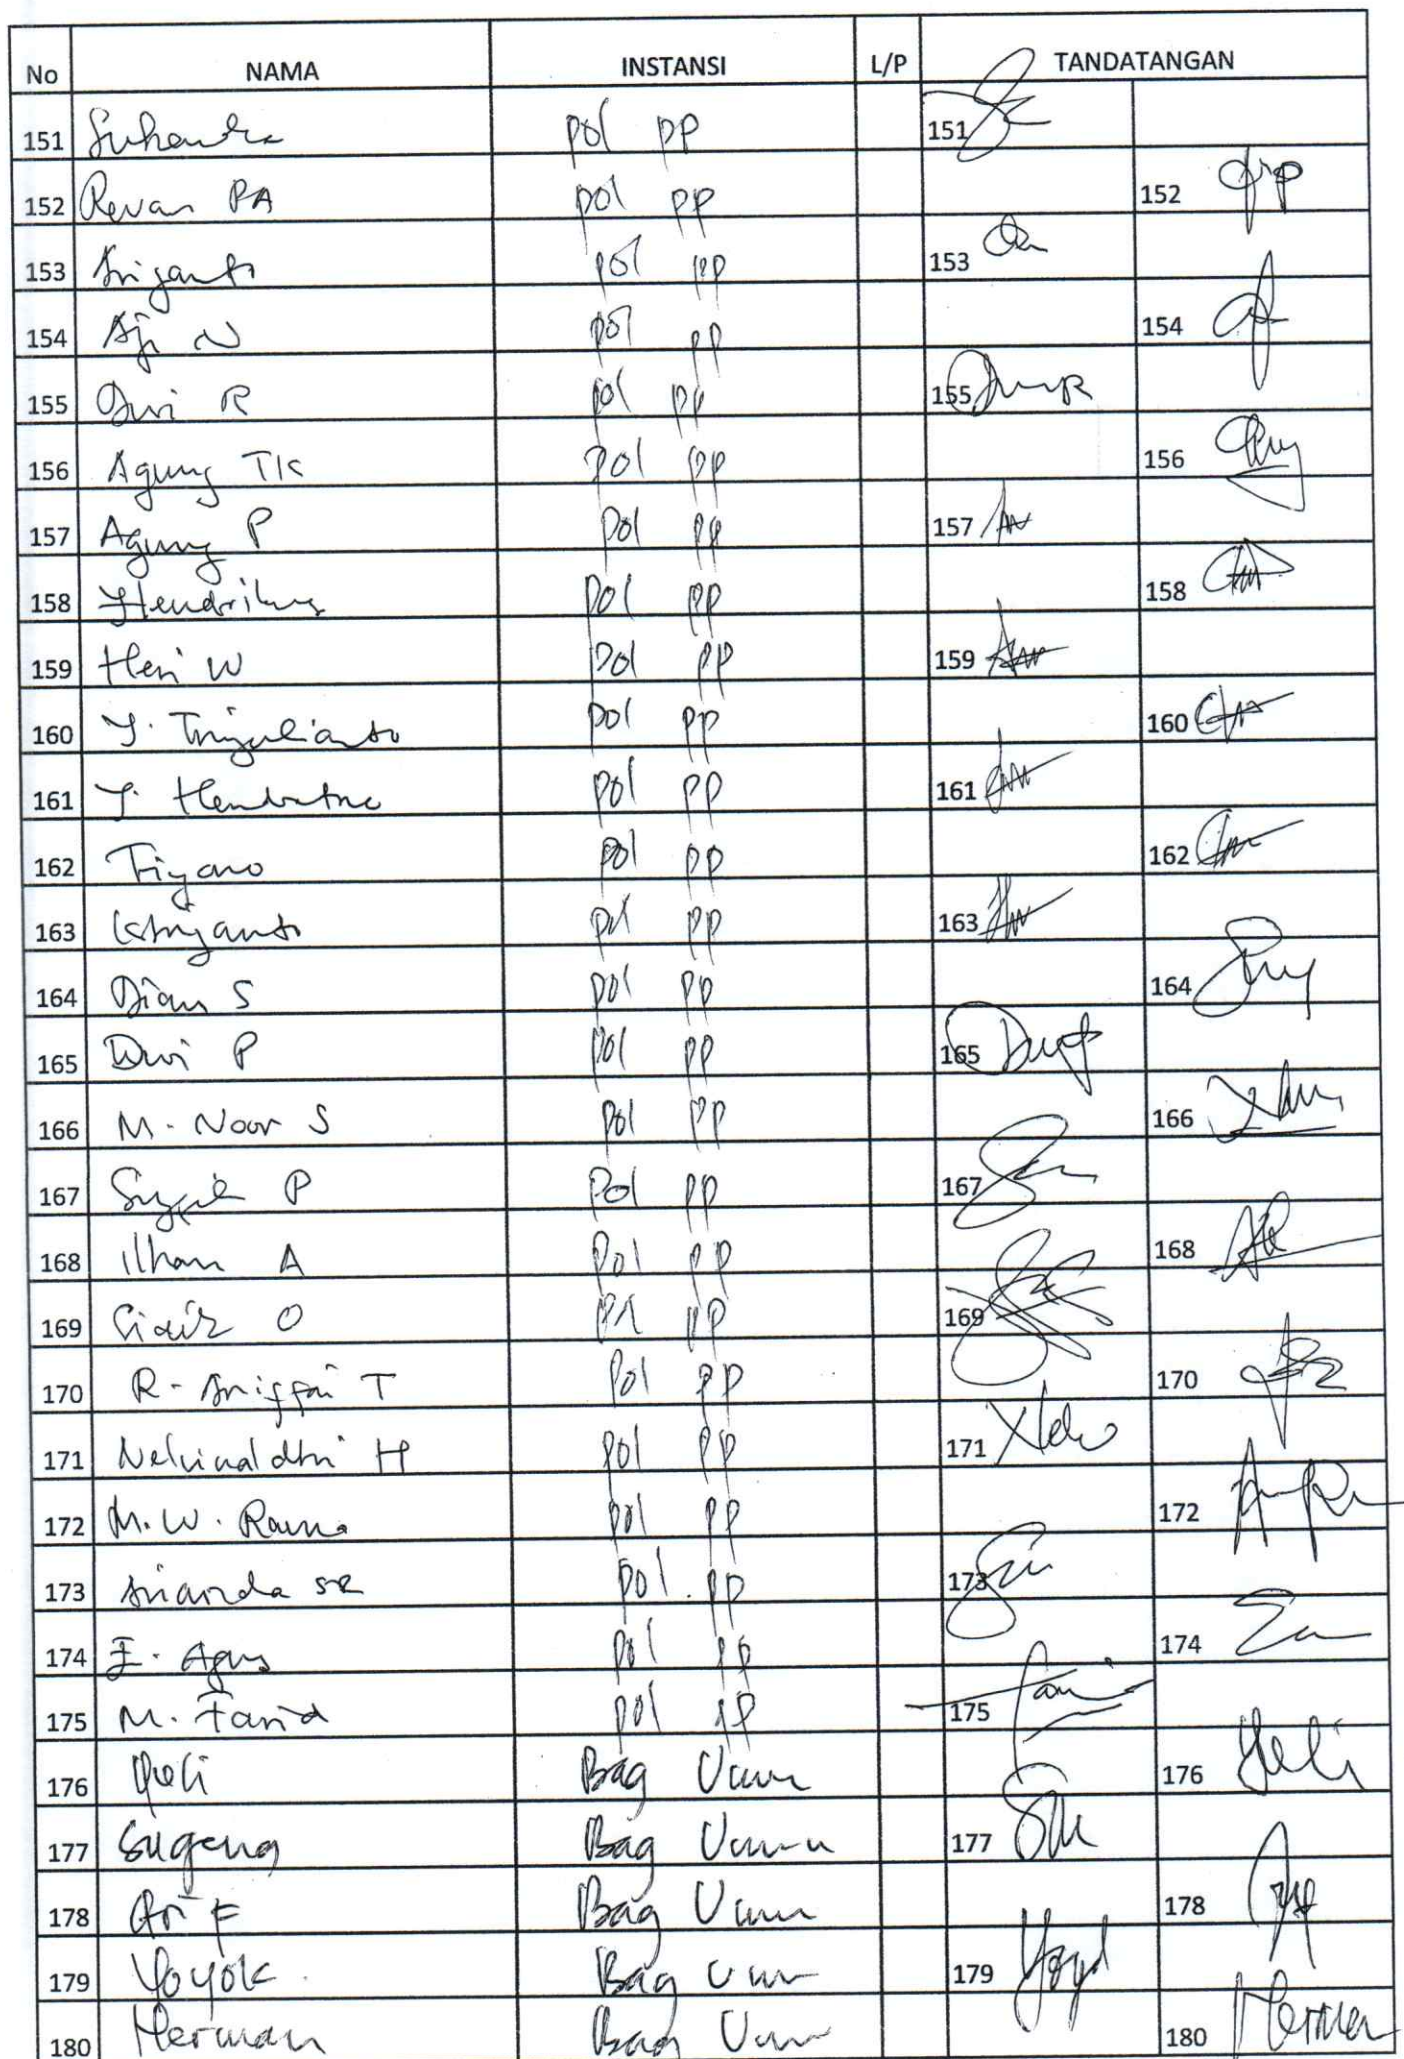 No NAMA INSTANSI L/P TANDATANGAN
151 Suhendra pol pp 151
152 Revan PA pol pp 152
153 Sriyanto pol pp 153
154 Aji N pol pp 154
155 Dwi R pol pp 155
156 Agung TK pol pp 156
157 Agung P pol pp 157
158 Hendrikus pol pp 158
159 Heri W pol pp 159
160 Y. Triyulianto pol pp 160
161 Y. Hendratno pol pp 161
162 Tiyono pol pp 162
163 Istriyanto pol pp 163
164 Dian S pol pp 164
165 Dwi P pol pp 165
166 M. Noor S pol pp 166
167 P pol pp 167
168 Ilham A pol pp 168
169 O pol pp 169
170 R. T pol pp 170
171 H pol pp 171
172 M. W. pol pp 172
173 pol pp 173
174 E. Agus pol pp 174
175 M. Farid pol pp 175
176 Yeli Bag Umum 176 Yeli
177 Sugeng Bag Umum 177
178 Ari F Bag Umum 178
179 Yoyok Bag Umum 179
180 Herman Bag Umum 180 Herman